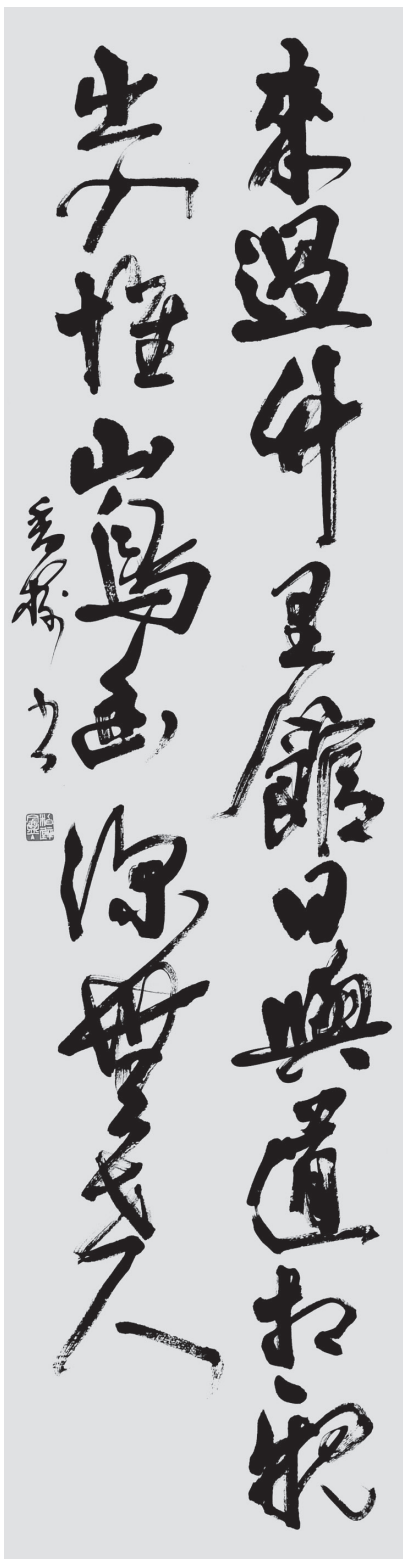 來過竹里館日與道相親
出入惟山鳥幽深無世人
書